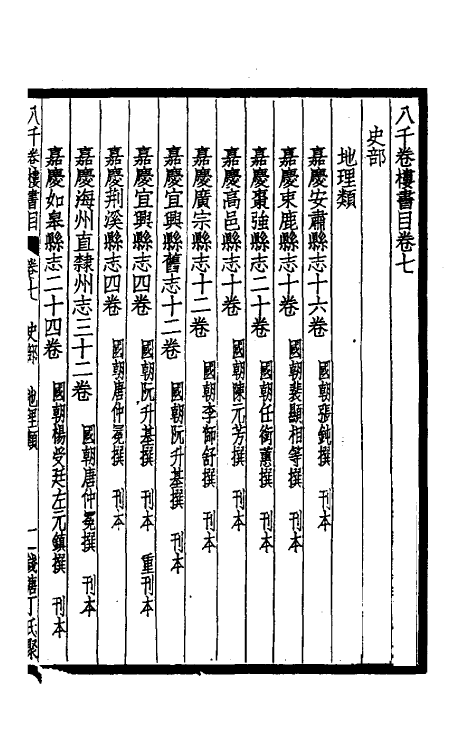 八千卷樓書目卷七
史部
地理類
嘉慶安肅縣志十六卷 國朝張鈍撰 刊本
嘉慶束鹿縣志十卷 國朝裴顯相等撰 刊本
嘉慶棗強縣志二十卷 國朝任銜蕙撰 刊本
嘉慶高邑縣志十卷 國朝陳元芳撰 刊本
嘉慶廣宗縣志十二卷 國朝李師舒撰 刊本
嘉慶宜興縣舊志十二卷 國朝阮升基撰 刊本
嘉慶宜興縣志四卷 國朝阮升基撰 刊本 重刊本
嘉慶荆溪縣志四卷 國朝唐仲冕撰 刊本
嘉慶海州直隸州志三十二卷 國朝唐仲冕撰 刊本
嘉慶如皋縣志二十四卷 國朝楊受廷左元鎮撰 刊本
八千卷樓書目 卷七 史部 地理類 一 錢塘丁氏聚